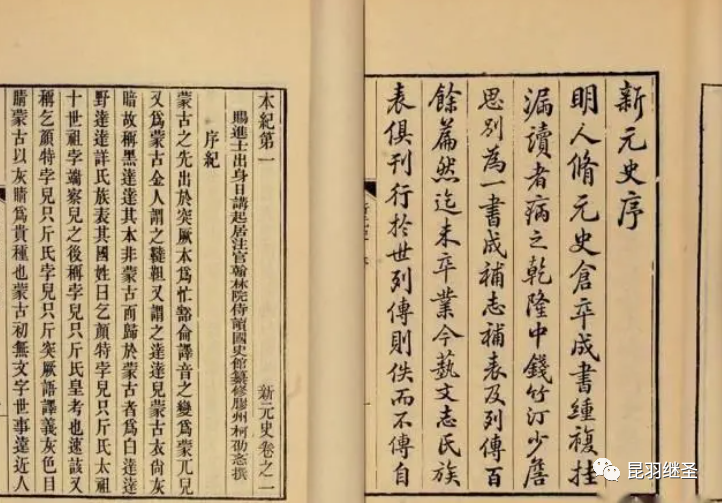 新元史序
明人脩元史倉卒成書緟複挂
漏讀者病之乾隆中錢竹汀少詹
思別為一書成補志補表及列傳百
餘篇然迄未卒業今藝文志氏族
表俱刊行於世列傳則佚而不傳自
本紀第一 新元史卷之一
賜進士出身日講起居注官翰林院侍讀國史館纂修膠州柯劭忞撰
序紀
蒙古之先出於突厥本為忙豁侖譯音之變為蒙兀兒
又爲蒙古金人謂之韃靼又謂之達達兒蒙古衣尚灰
暗故稱黑達達其本非蒙古而歸於蒙古者爲白達達
野達達詳氏族表其國姓曰乞顏特孛兒只斤氏太祖
十世祖孛端察兒之後稱孛兒只斤氏皇考也速該又
稱乞顏特孛兒只斤氏孛兒只斤突厥語譯義灰色目
睛蒙古以灰睛爲貴種也蒙古初無文字世事遠近人
昆羽继圣